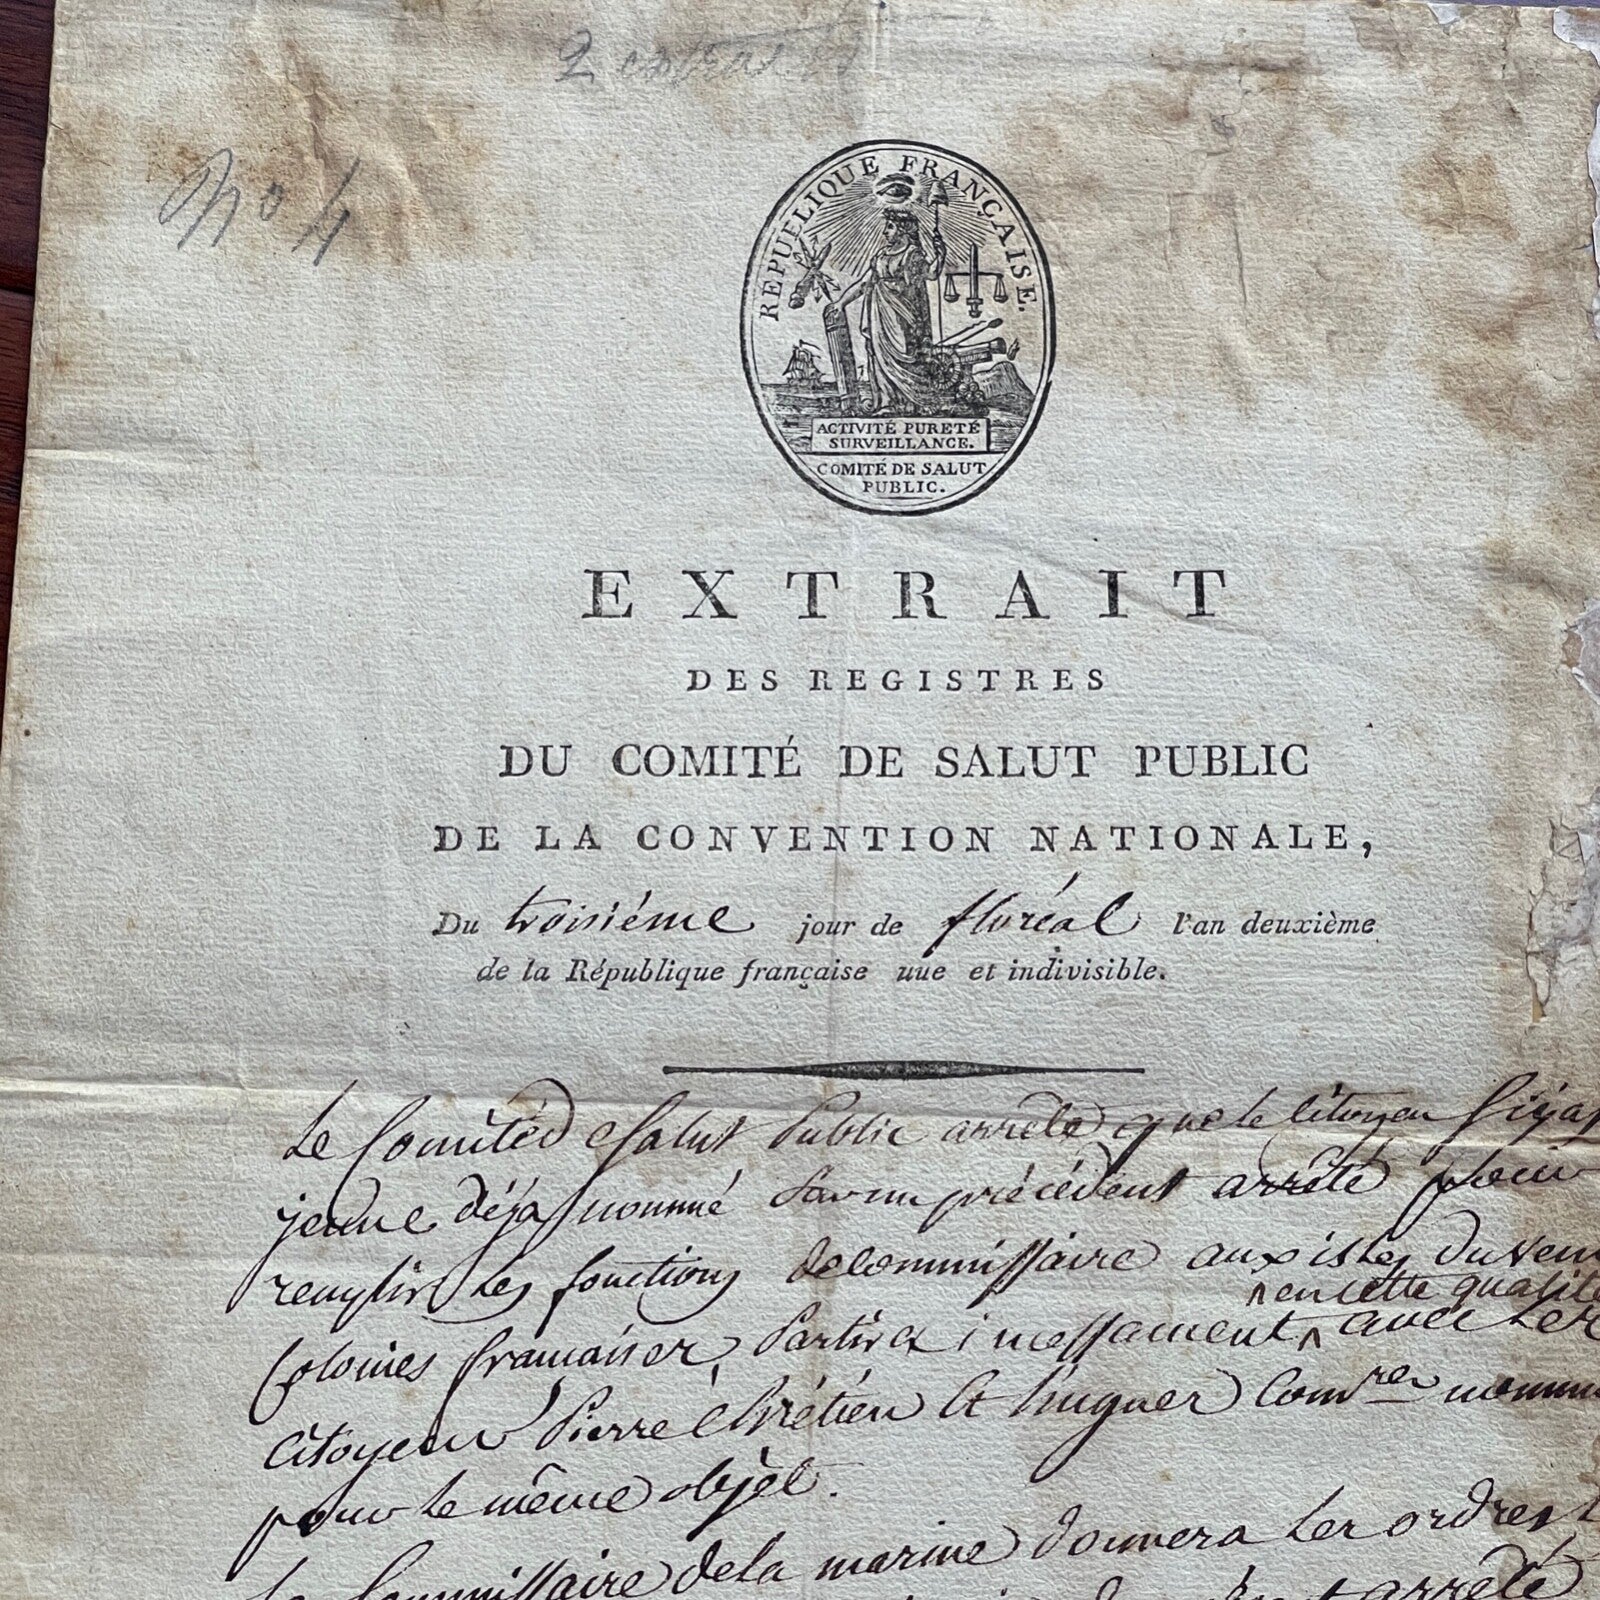 2 extrait
No 4
REPUBLIQUE FRANÇAISE.
ACTIVITÉ PURETÉ
SURVEILLANCE.
COMITÉ DE SALUT
PUBLIC.
EXTRAIT
DES REGISTRES
DU COMITÉ DE SALUT PUBLIC
DE LA CONVENTION NATIONALE,
Du troisiéme jour de floréal l'an deuxième
de la République française une et indivisible.
Le Comité d Salut Public arrête que le Citoyen
jeune déja nommé par un précédent arrêté pour
remplir les fonctions de Commissaire aux isles du Vent
en cette qualité
Colonies françaises, partira incessament ^ avec les
Citoyens Pierre Chrétien et hugues Comres nommé
pour le même objet.
Le Commissaire de la marine donnera les ordres
arrêté